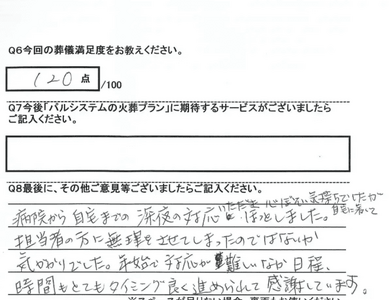 Q6今回の葬儀満足度をお教えください。
120 点 /100
Q7今後「パルシステムの火葬プラン」に期待するサービスがございましたら
ご記入ください。
Q8最後に、その他ご意見等ございましたらご記入ください。
いただき 心ぼそい気持ちでしたが
自宅に着いて
病院から自宅までの深夜の対応 ほっとしました。
担当者の方に無理をさせてしまったのではないか
気がかりでした。年始で対応が難しいなか日程、
時間もとてもタイミング良く進められて感謝しています。